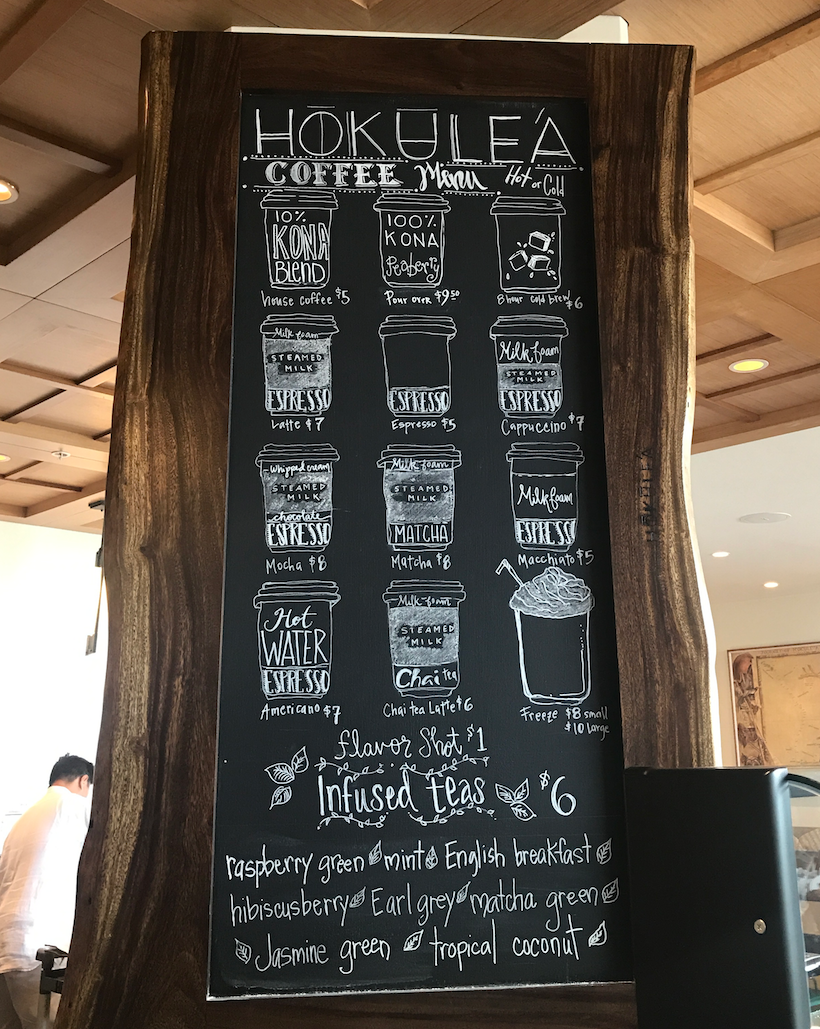 HŌKŪLE'A
COFFEE Menu Hot or Cold
10%
KONA
BLEND
house coffee $5
100%
KONA
Peaberry
Pour over $9.50
8 hour cold brew $6
Milk foam
STEAMED
MILK
ESPRESSO
Latte $7
ESPRESSO
Espresso $5
Milk foam
STEAMED
MILK
ESPRESSO
Cappuccino $7
Whipped cream
STEAMED
MILK
chocolate
ESPRESSO
Mocha $8
Milk foam
STEAMED
MILK
MATCHA
Matcha $8
Milk foam
ESPRESSO
Macchiato $5
Hot
WATER
ESPRESSO
Americano $7
Milk foam
STEAMED
MILK
Chai tea
Chai tea Latte $6
Freeze $8 small
$10 large
flavor shot $1
Infused teas $6
raspberry green mint English breakfast
hibiscusberry Earl grey matcha green
Jasmine green tropical coconut